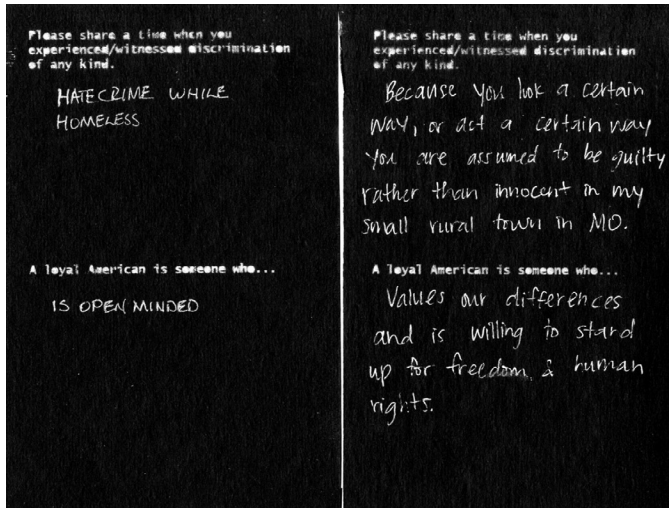 Please share a time when you
experienced/witnessed discrimination
of any kind.
HATECRIME WHILE
HOMELESS
A loyal American is someone who...
IS OPEN MINDED
Please share a time when you
experienced/witnessed discrimination
of any kind.
Because you look a certain
way, or act a certain way
you are assumed to be guilty
rather than innocent in my
small rural town in MO.
A loyal American is someone who...
Values our differences
and is willing to stand
up for freedom & human
rights.